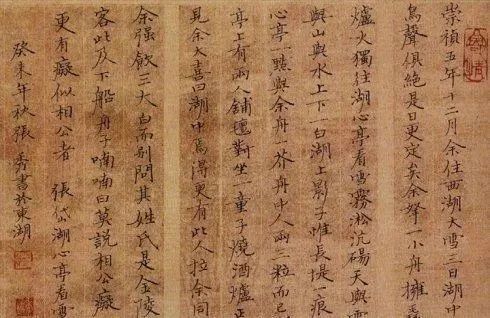 崇禎五年十二月余住西湖大雪三日湖中
鳥聲俱絕是日更定矣余拏一小舟擁毳
爐火獨往湖心亭看雪霧淞沆碭天與雲
與山與水上下一白湖上影子惟長堤一痕
心亭一點與余舟一芥舟中人兩三粒而已
亭上有兩人鋪氈對坐一童子燒酒爐正
見余大喜曰湖中焉得更有此人拉余同
余強飲三大白而別問其姓氏是金陵
客此及下船舟子喃喃曰莫說相公癡
更有癡似相公者 張岱湖心亭看雪
癸未年秋張秀書於東湖